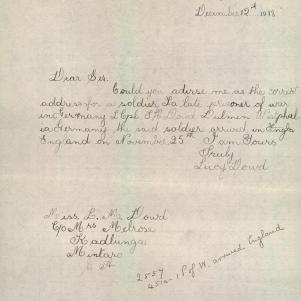 December 12th 1918
Dear Sir.
Could you advise me as the correct
address for a soldier, (a late prisoner of war
in Germany L Cpl F H Dowd Dulmen Westphal
ia Germany the said soldier arrived in Engla
England on November 25th I am Yours
Truly
Lucy Dowd
Miss. L. M. Dowd
C/o Mrs Melrose
Kadlunga
Mintaro
S A
2557
45 Bn P of W. arrived England